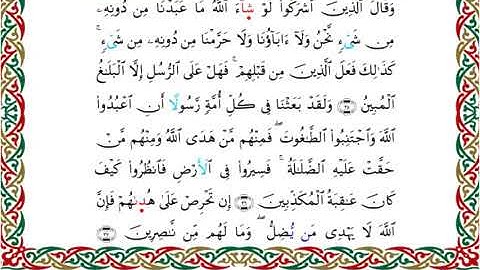 وَقَالَ ٱلَّذِينَ أَشْرَكُوا۟ لَوْ شَآءَ ٱللَّهُ مَا عَبَدْنَا مِن دُونِهِۦ
مِن شَىْءٍ نَّحْنُ وَلَآ ءَابَآؤُنَا وَلَا حَرَّمْنَا مِن دُونِهِۦ مِن شَىْءٍ ۚ
كَذَٰلِكَ فَعَلَ ٱلَّذِينَ مِن قَبْلِهِمْ ۚ فَهَلْ عَلَى ٱلرُّسُلِ إِلَّا ٱلْبَلَٰغُ
ٱلْمُبِينُ ٣٥ وَلَقَدْ بَعَثْنَا فِى كُلِّ أُمَّةٍ رَّسُولًا أَنِ ٱعْبُدُوا۟
ٱللَّهَ وَٱجْتَنِبُوا۟ ٱلطَّٰغُوتَ ۖ فَمِنْهُم مَّنْ هَدَى ٱللَّهُ وَمِنْهُم مَّنْ
حَقَّتْ عَلَيْهِ ٱلضَّلَٰلَةُ ۚ فَسِيرُوا۟ فِى ٱلْأَرْضِ فَٱنظُرُوا۟ كَيْفَ
كَانَ عَٰقِبَةُ ٱلْمُكَذِّبِينَ ٣٦ إِن تَحْرِصْ عَلَىٰ هُدَىٰهُمْ فَإِنَّ
ٱللَّهَ لَا يَهْدِى مَن يُضِلُّ ۖ وَمَا لَهُم مِّن نَّٰصِرِينَ ٣٧